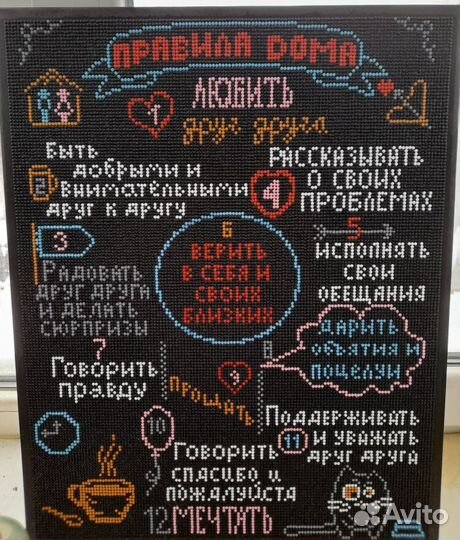 ПРАВИЛА ДОМА
1
ЛЮБИТЬ
друг друга
2
БЫТЬ
добрыми и
внимательными
друг к другу
3
Радовать
друг друга
и делать
сюрпризы
4
Рассказывать
о своих
проблемах
5
исполнять
свои
обещания
6
верить
в себя и
своих
близких
7
Говорить
правду
8
Дарить
объятия и
поцелуи
9
Прощать
10
Говорить
спасибо и
пожалуйста
11
Поддерживать
и уважать
друг друга
12 МЕЧТАТЬ
Avito